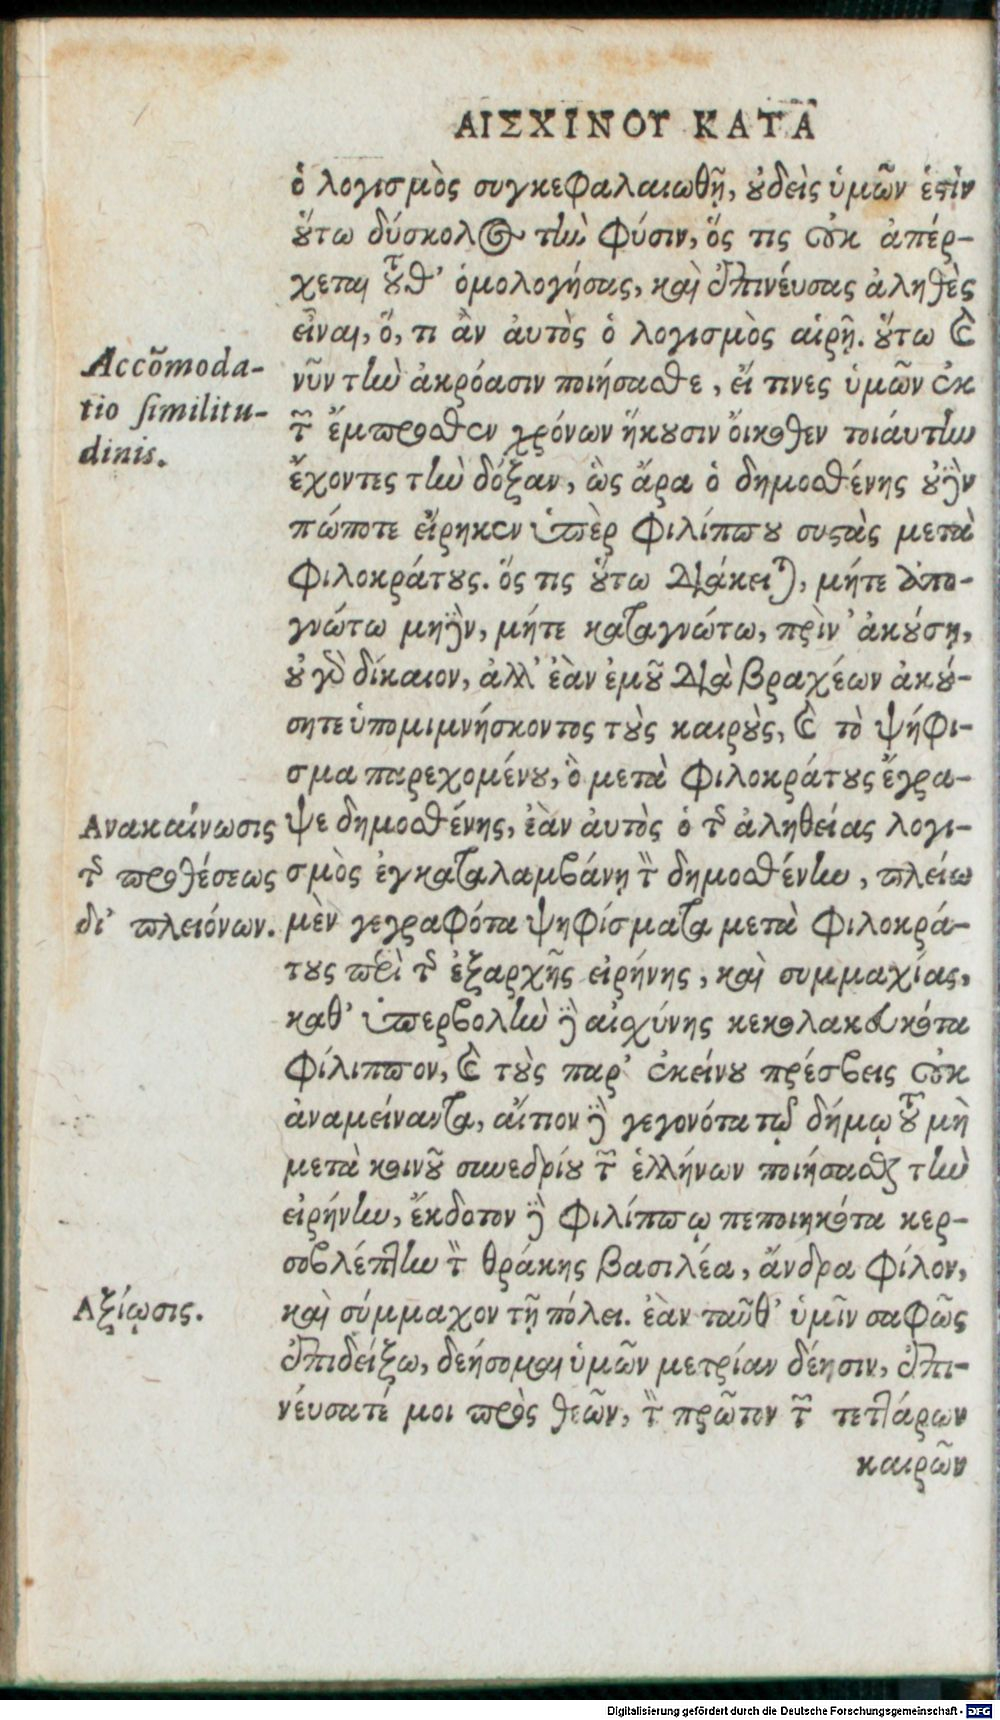 ΑΙΣΧΙΝΟΥ ΚΑΤΑ
ὁ λογισμὸς συγκεφαλαιωθῇ, ȣ̓δεὶς ὑμῶν ἐϛὶν
ȣ̔́τω δύσκολος τὴν φύσιν, ὅς τις ȣ̓κ ἀπέρ-
χεται τȣ͂θ' ὁμολογήσας, καὶ ἐπινέυσας ἀληθὲς
εἶναι, ὅ, τι ἂν ἀυτὸς ὁ λογισμὸς αἱρῇ. ȣ̔́τω καὶ
Accõmoda-
tio ſimilitu-
dinis.
νῦν τὴν ἀκρόασιν ποιήσασθε, εἴ τινες ὑμῶν ἐκ
τῶν ἔμπροσθεν χρόνων ἥκȣσιν ὄικοθεν τοιάυτην
ἔχοντες τὴν δόξαν, ὡς ἄρα ὁ δημοσθένης ȣ̓δὲν
πώποτε εἴρηκεν ὑπὲρ Φιλίππȣ συϛὰς μετὰ
Φιλοκράτȣς. ὅς τις ȣ̔́τω διάκειται, μήτε ἀπο-
γνώτω μηδὲν, μήτε καταγνώτω, πρὶν ἀκȣ́σῃ,
ȣ̓ γὰρ δίκαιον, ἀλλ' ἐὰν ἐμȣ͂ διὰ βραχέων ἀκȣ́-
σητε ὑπομιμνήσκοντος τȣ̀ς καιρȣ̀ς, καὶ τὸ ψήφι-
σμα παρεχομένȣ, ὃ μετὰ Φιλοκράτȣς ἔγρα-
Ανακαίνωσις
τῆς προθέσεως
δι' πλειόνων.
ψε δημοσθένης, ἐὰν ἀυτὸς ὁ τῆς ἀληθείας λογι-
σμὸς ἐγκαταλαμβάνῃ τὸν δημοσθένην, πλείω
μὲν γεγραφότα ψηφίσματα μετὰ Φιλοκρά-
τȣς περὶ τῆς ἐξαρχῆς εἰρήνης, καὶ συμμαχίας,
καθ' ὑπερβολὴν δὲ αἰσχύνης κεκολακευκότα
Φίλιππον, καὶ τȣ̀ς παρ' ἐκείνȣ πρέσβεις ȣ̓κ
ἀναμείναντα, αἴτιον δὲ γεγονότα τῷ δήμῳ τȣ͂ μὴ
μετὰ κοινȣ͂ συνεδρίȣ τῶν ἑλλήνων ποιήσασθαι τὴν
εἰρήνην, ἔκδοτον δὲ Φιλίππῳ πεποιηκότα κερ-
σοβλέπτην τὸν θράκης βασιλέα, ἄνδρα φίλον,
Αξίωσις.
καὶ σύμμαχον τῇ πόλει. ἐὰν ταῦθ' ὑμῖν σαφῶς
ἐπιδείξω, δεήσομαι ὑμῶν μετρίαν δέησιν, ἐπι-
νέυσατέ μοι πρὸς θεῶν, τὸν πρῶτον τῶν τεττάρων
καιρῶν
Digitalisierung gefördert durch die Deutsche Forschungsgemeinschaft - DFG